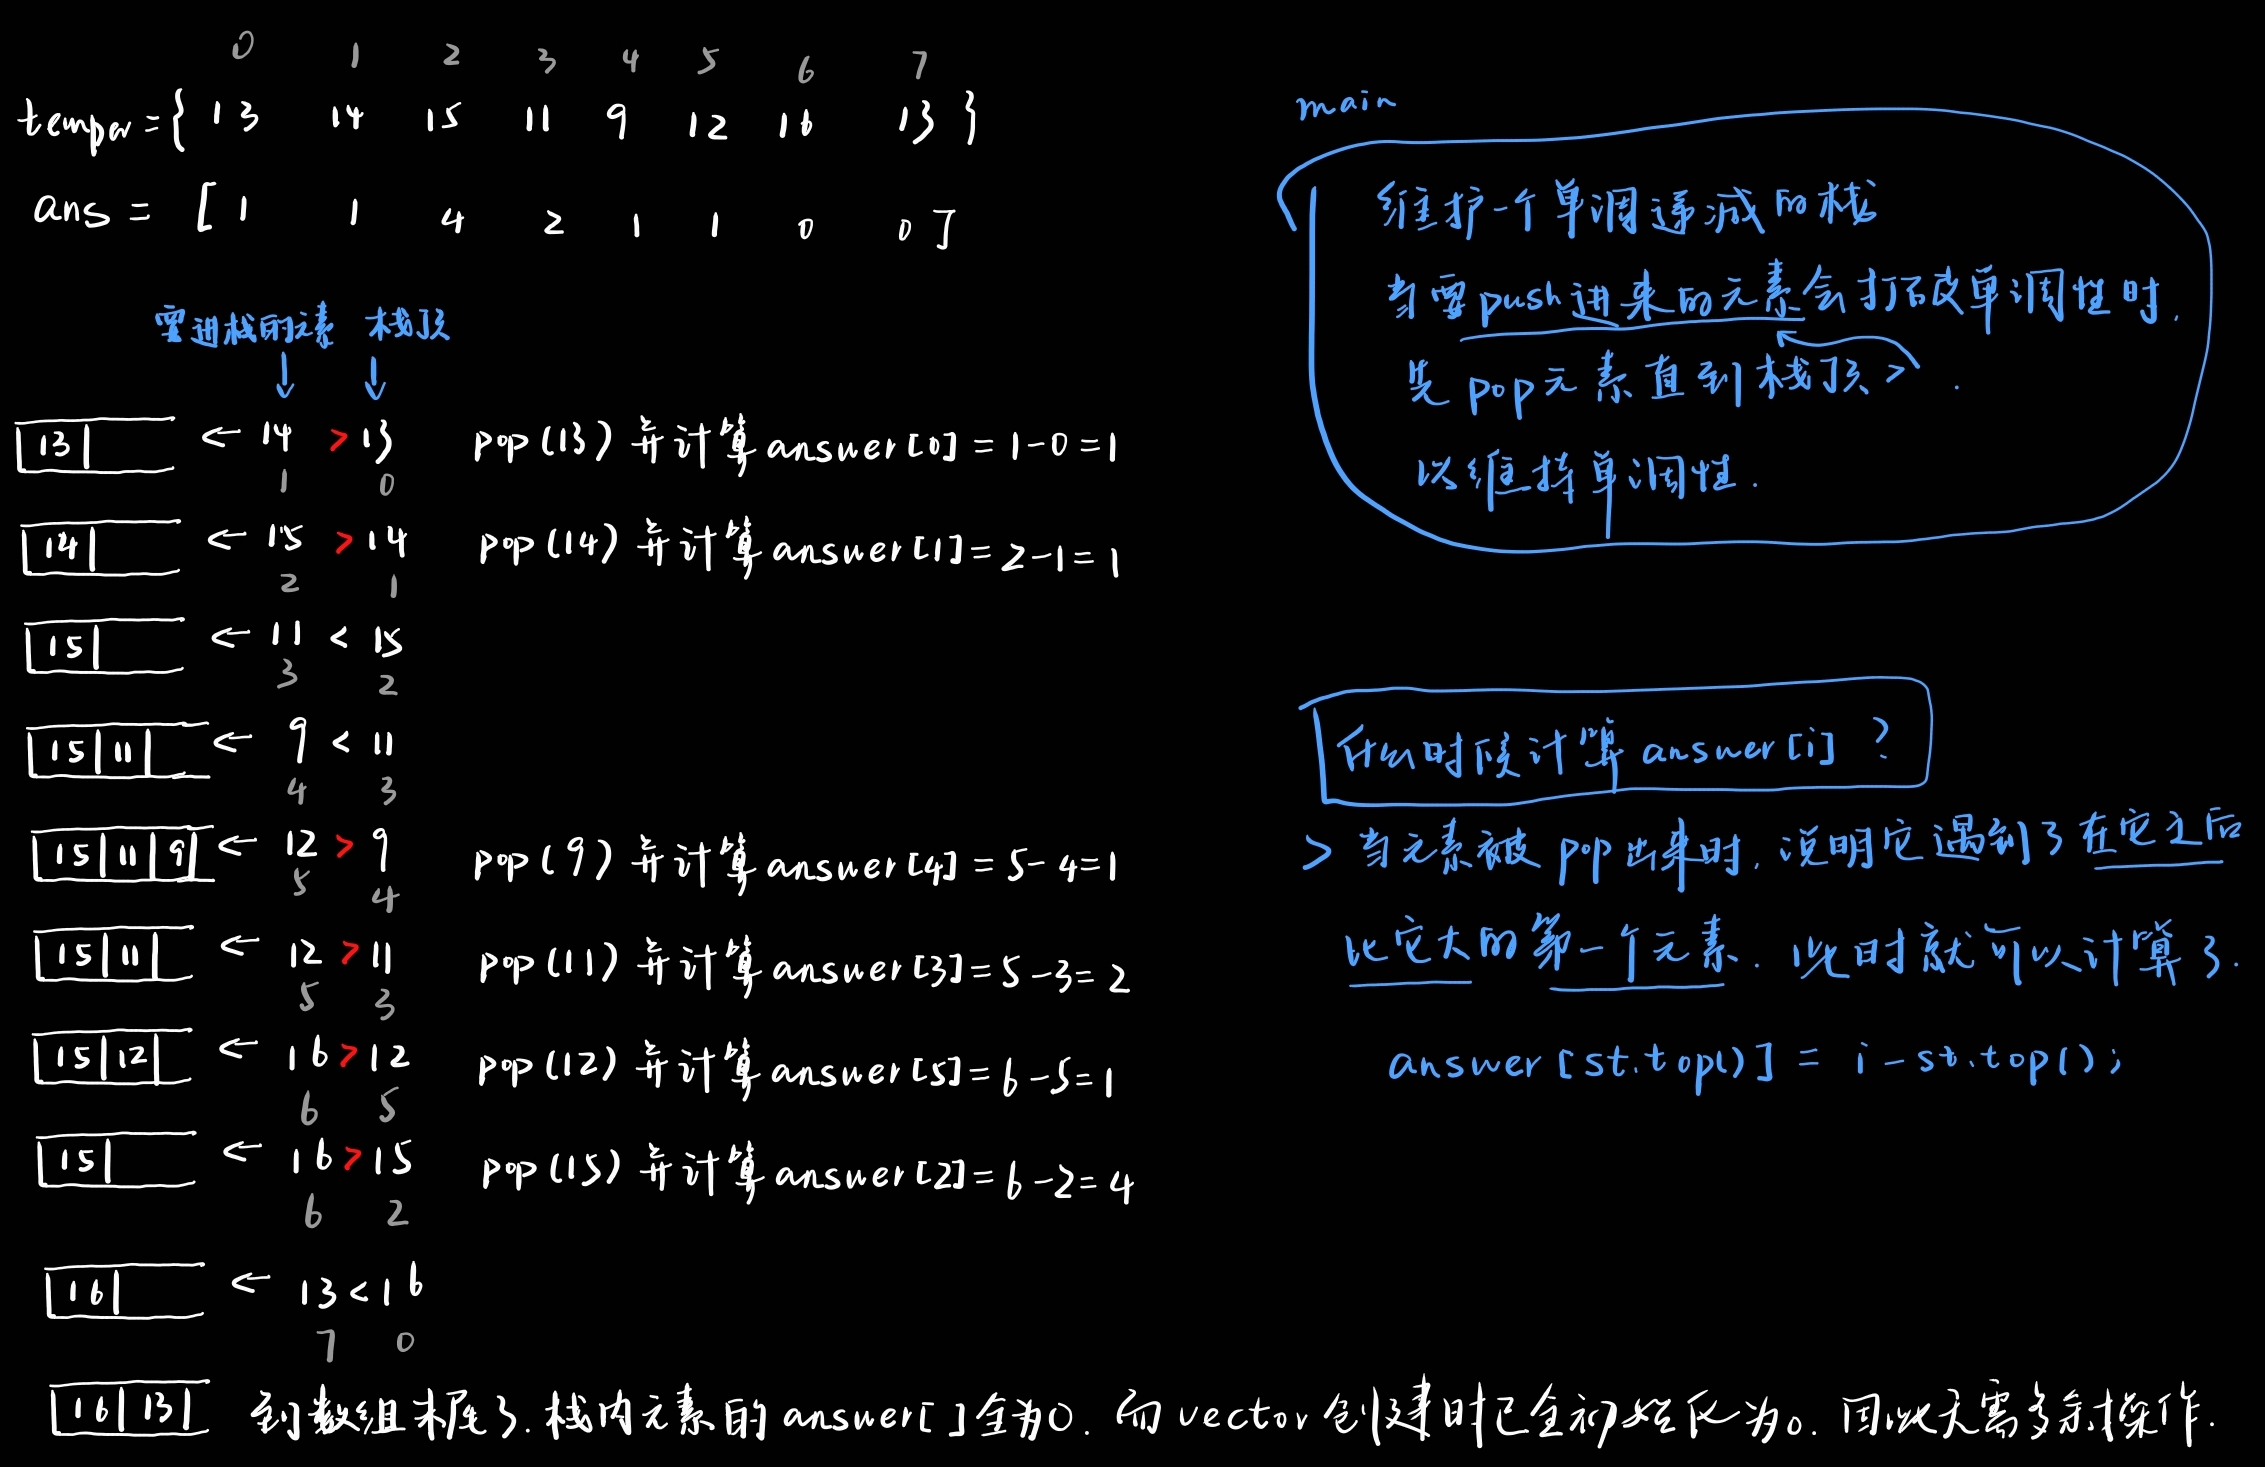 0 1 2 3 4 5 6 7
temper={ 13 14 15 11 9 12 16 13 }
ans = [ 1 1 4 2 1 1 0 0 ]
要进栈的元素 栈顶
↓ ↓
13 ← 14 > 13 pop(13) 并计算 answer[0] = 1-0=1
1 0
14 ← 15 > 14 pop(14) 并计算 answer[1]= 2-1= 1
2 1
15 ← 11 < 15
3 2
15 11 ← 9 < 11
4 3
15 11 9 ← 12 > 9 pop(9) 并计算 answer[4] = 5-4=1
5 4
15 11 ← 12 > 11 pop(11) 并计算 answer[3]= 5-3= 2
5 3
15 12 ← 16 > 12 pop(12) 并计算 answer[5]= 6-5=1
6 5
15 ← 16 > 15 pop(15) 并计算 answer[2]= 6-2= 4
6 2
16 ← 13 < 16
7 0
16 13 到数组末尾了. 栈内元素的 answer[ ] 全为0. 而 vector 创建时已全初始化为0. 因此无需多余操作.
main
维护一个单调递减的栈
当要push进来的元素会打破单调性时,
先 pop元素直到栈顶 > .
以维持单调性.
什么时候计算 answer[i] ?
> 当元素被 pop 出来时, 说明它遇到了在它之后
比它大的第一个元素. 此时就可以计算了.
answer[st.top()] = i-st.top();